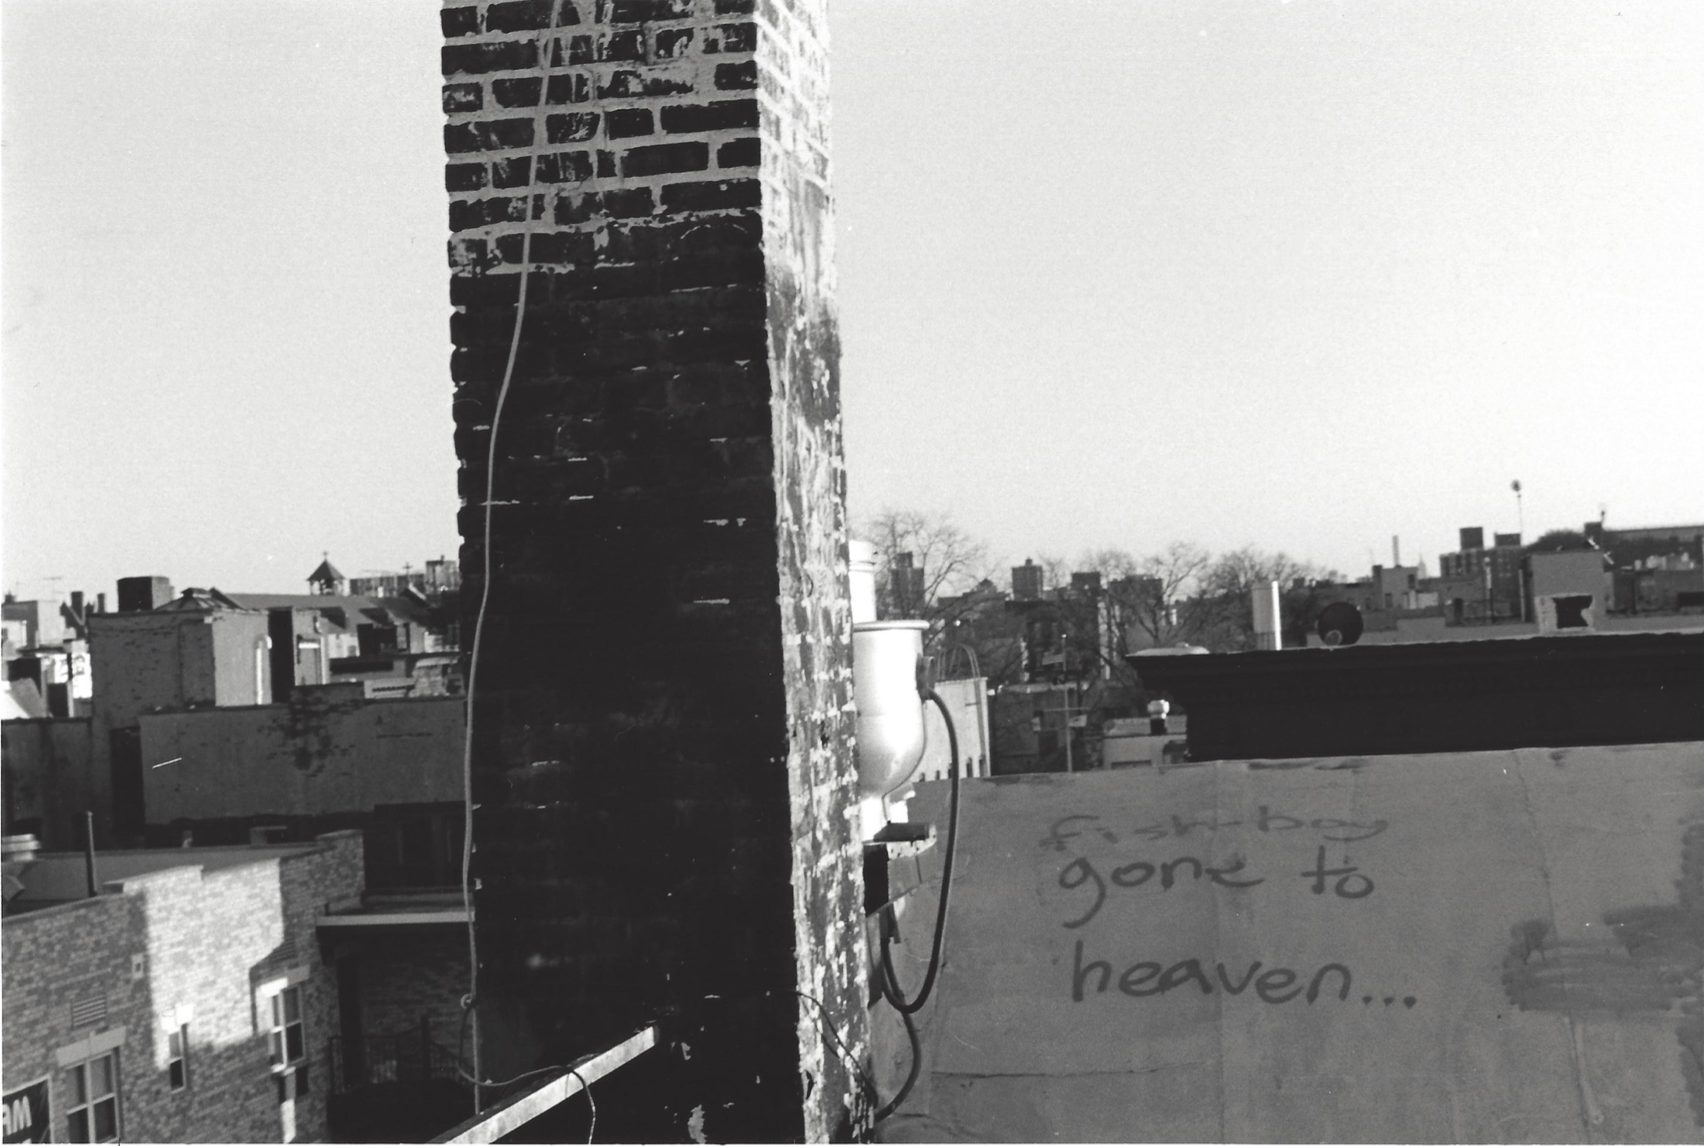 fish-boy
gone to
heaven...